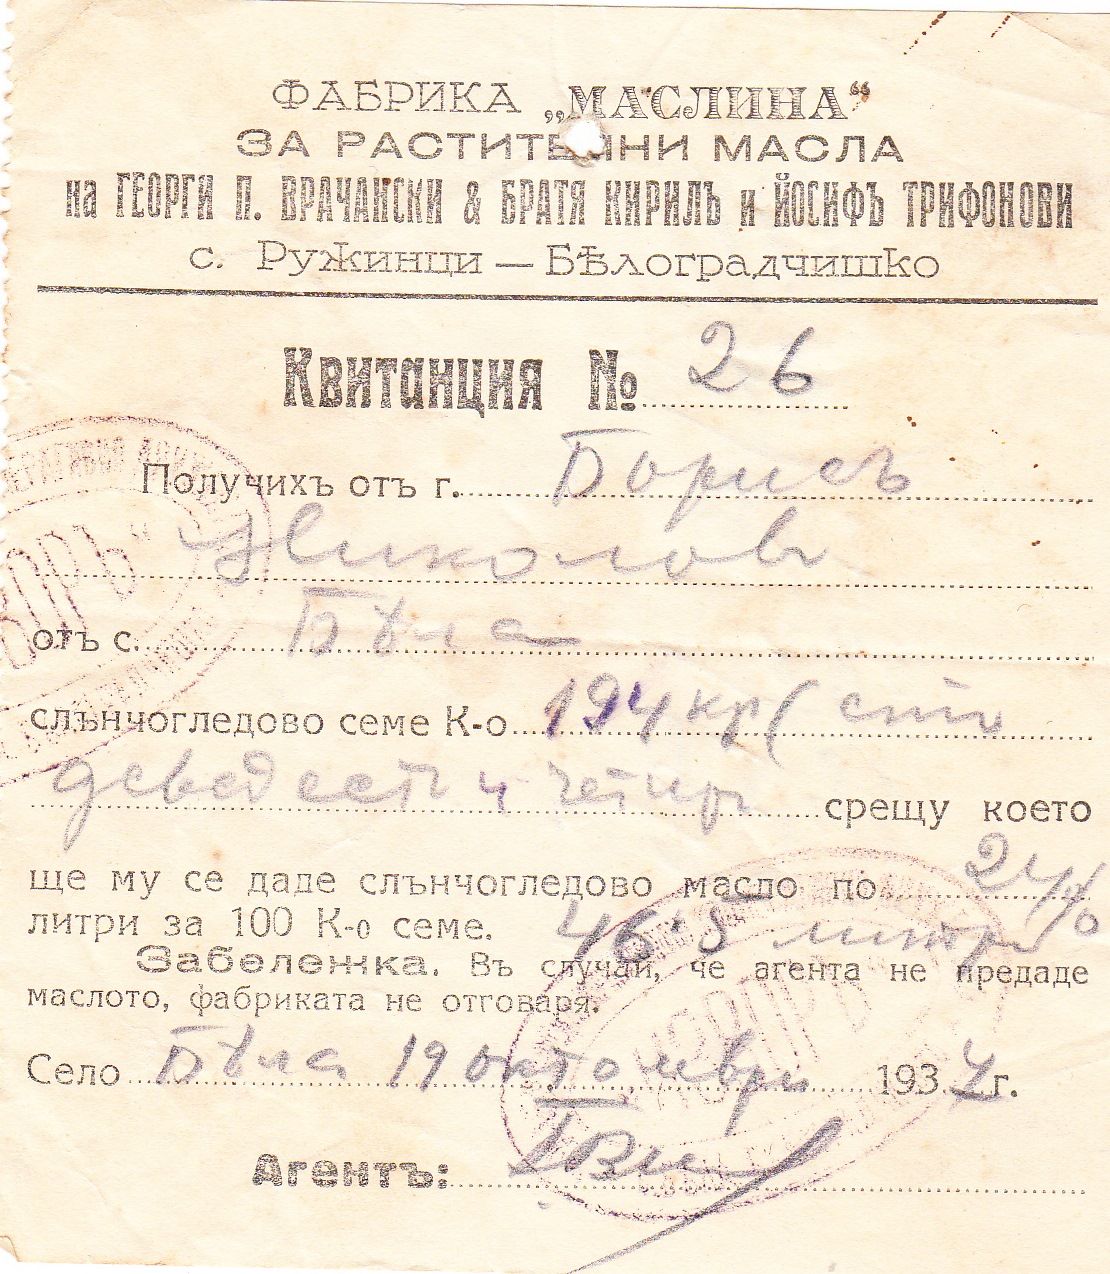 ФАБРИКА „МАСЛИНА“
ЗА РАСТИТЕЛНИ МАСЛА
на ГЕОРГИ П. ВРАЧАНСКИ & БРАТЯ КИРИЛЪ и ЙОСИФЪ ТРИФОНОВИ
с. Ружинци — Бѣлоградчишко
Квитанция № 26
Получихъ отъ г. Борисъ
Николовъ
отъ с. Бѣла
слънчогледово семе К-о 194 кгр ( сто
деведесетъ и четири срещу което
ще му се даде слънчогледово масло по 24%
литри за 100 К-о семе. 46·5 литри
Забележка. Въ случай, че агента не предаде
маслото, фабриката не отговаря.
Село Бѣла 19 октомври 1937 г.
Агентъ: